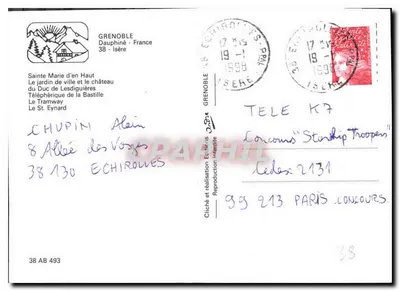 GRENOBLE
Dauphiné - France
38 - Isère
Sainte Marie d'en Haut
Le jardin de ville et le château
du Duc de Lesdiguières
Téléphérique de la Bastille
Le Tramway
Le St. Eynard
CHUPIN Alain
8 Allée des Vosges
38130 ECHIROLLES
38 AB 493
GRENOBLE
Cliché et réalisation
Reproduction interdite
38 ECHIROLLES PPAL
19-1
1998
ISERE
38 ECHIROLLES PPAL
19-1
1998
ISERE
TELE K7
Concours "Starship Troopers"
Cedex 2131
99 213 PARIS CONCOURS
38